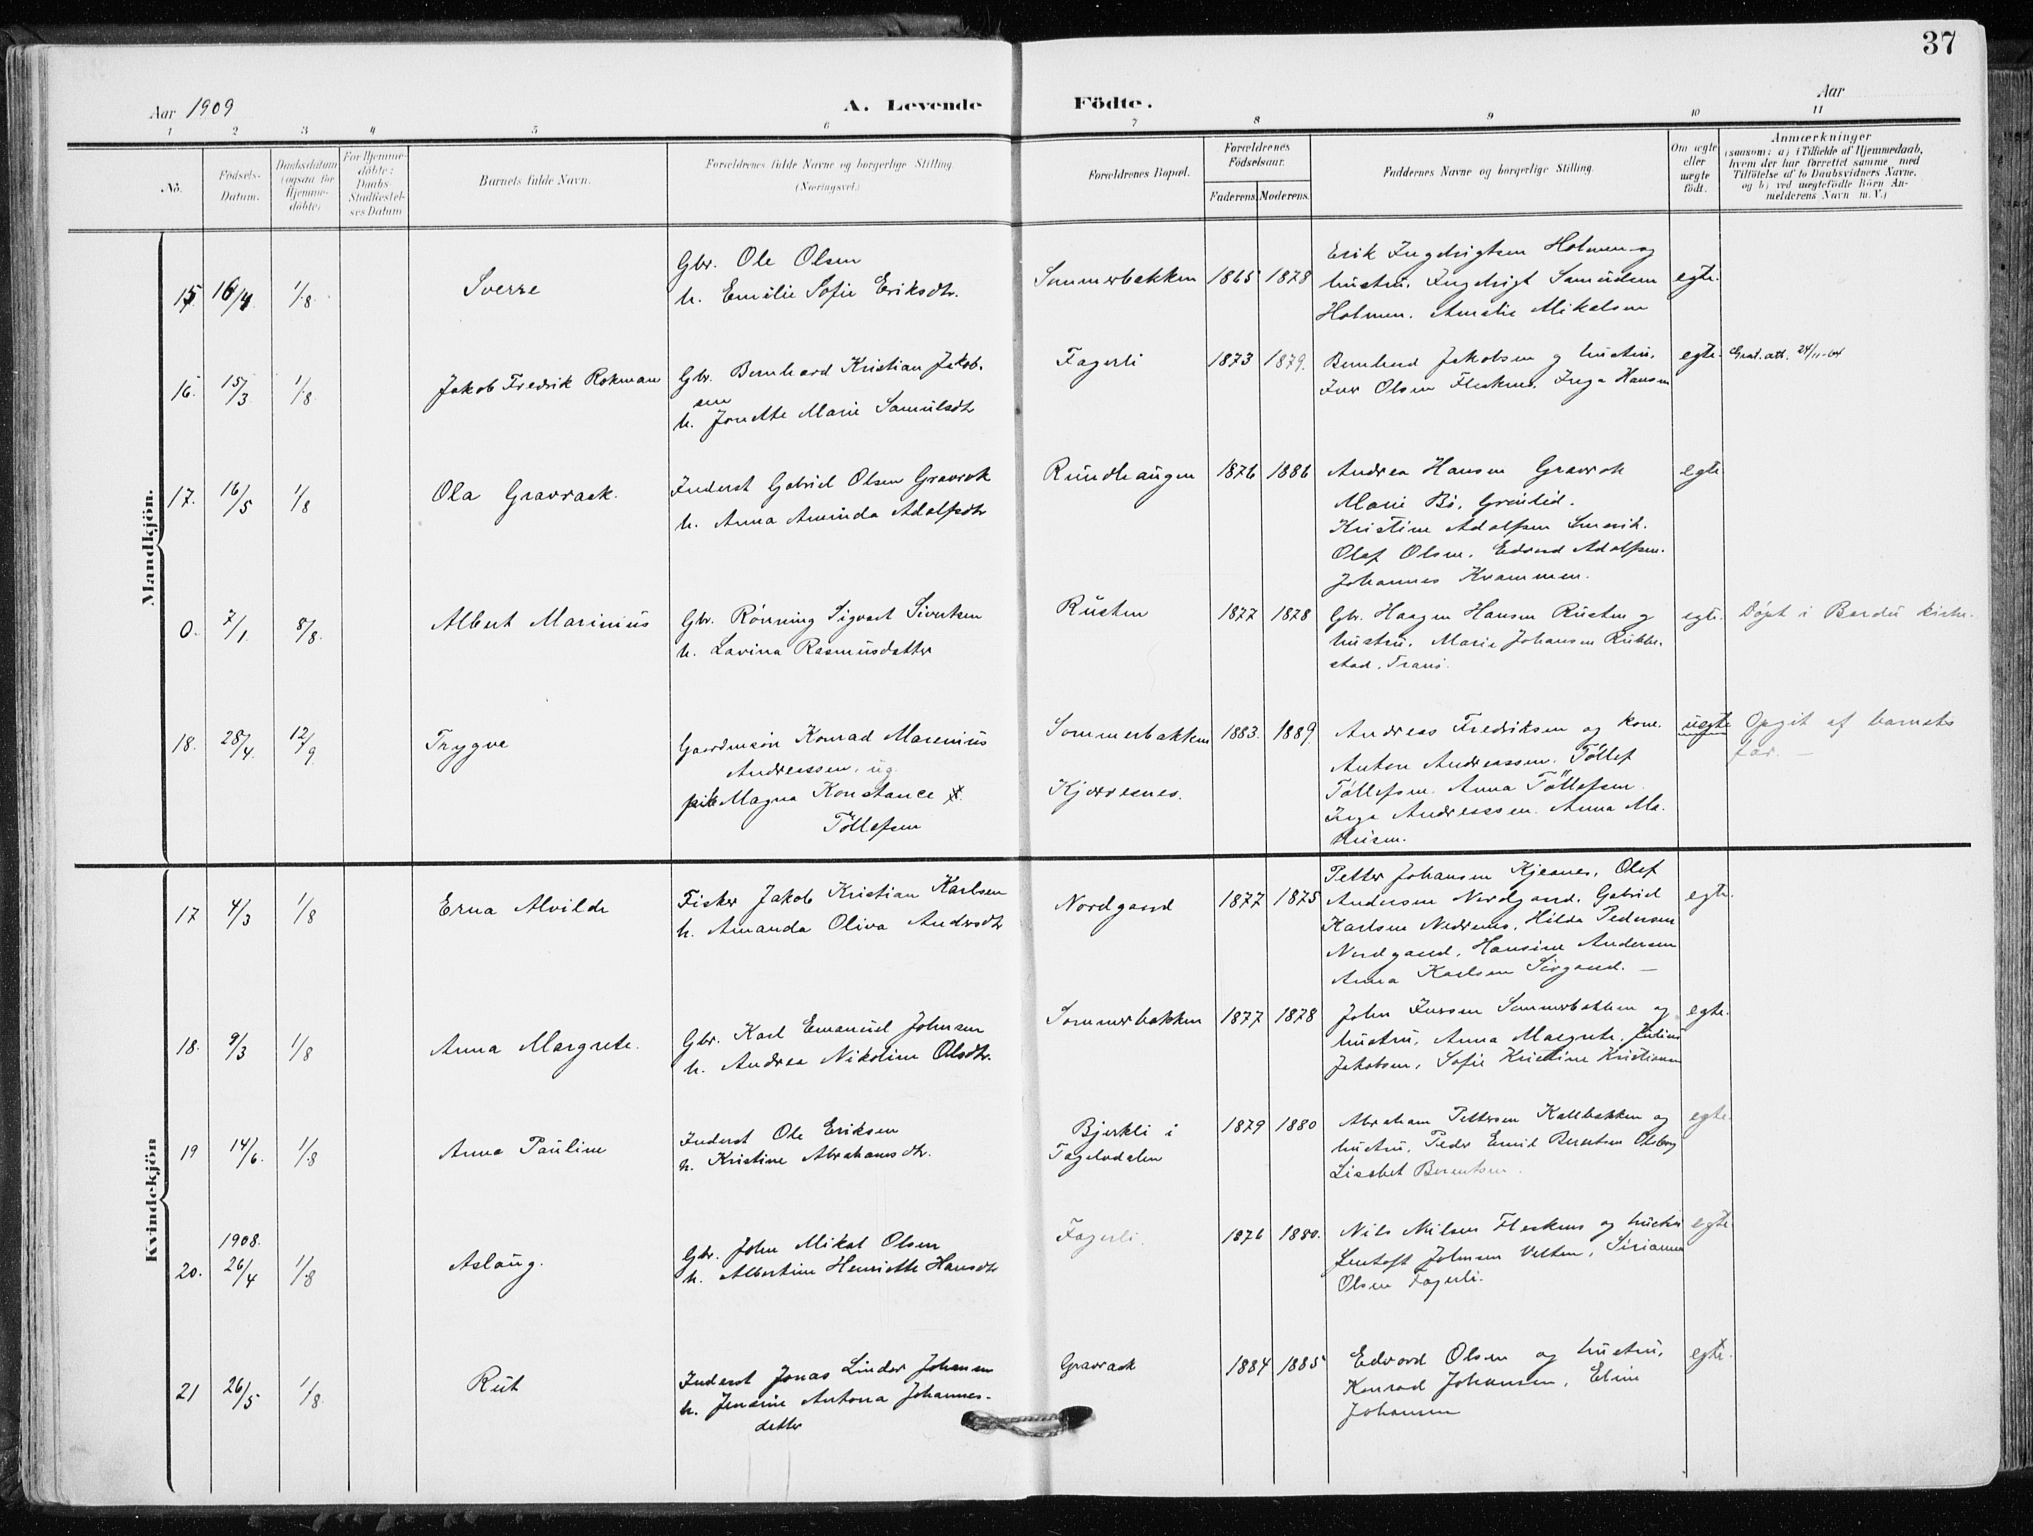 37
Aar 1909
A. Levende Födte.
Aar
1 2 3 4 5 6 7 8 9 10 11
No.
Födsels-Datum.
Daabsdatum (ogsaa for Hjemmedöbte)
For Hjemmedöbte: Daabs-Stadfæstelses Datum
Barnets fulde Navn.
Forældrenes fulde Navne og borgerlige Stilling.
(Næringsvei.)
Forældrenes Bopæl.
Forældrenes Födselsaar.
Faderens. Moderens.
Faddernes Navne og borgerlige Stilling.
Om ægte eller uægte födt.
Anmærkninger
(saasom: a) i Tilfælde af Hjemmedaab,
hvem der har forrettet samme, med
Tilföielse af to Daabsvidners Navne,
og b) ved uægtefödte Börn An-
melderens Navn m. V.)
Mandkjön.
15 16/4 1/8 Sverre
Gbr. Ole Olsen
h. Emilie Sofie Eriksdtr.
Sommerbakken 1865 1878
Erik Ingebrigtsen Holmen og
hustru, Ingebrigt Samuelsen
Holmen, Amalie Mikalsen
egte.
16. 15/3 1/8 Jakob Fredrik Rokman
Gbr. Bernhard Kristian Jakob-
sen
h. Jonette Marie Samuelsdtr
Fagerli 1873 1879.
Bernhard Jakobsen og hustru,
Iver Olsen Flesknes, Inga Hansen
egte. 24/11-64
17. 16/5 1/8 Ola Gravraak.
Inderst Gabriel Olsen Gravrok
h. Anna Aminda Adolfsdtr
Rundhaugen 1876 1886
Andrea Hansen Gravrok
Marie Bö, Grönlid.
Kristine Adolfsen
Olaf Olsen, Edvard Adolfsen.
Johannes Kvammen.
egte
0. 7/1 8/8 Albert Marinius
Gbr. Rönning Sigvart Sivertsen
h. Lavina Rasmusdatter
Rusten 1877 1878
Gbr. Haagen Hansen Rusten og
hustru, Marie Johansen Rubbe-
stad, Tranö.
egte. Döpt i Bardu kirke.
18. 28/4. 12/9 Trygve
Gaardmsön Konrad Marenius
Andreassen, ug.
pike Magna Konstance
Töllefsen
Sommerbakken
Kjerresnes.
1883. 1889.
Andreas Fredriksen og kone.
Anton Andreassen. Töllef
Töllefsen. Anna Töllefsen
Inga Andreassen. Anna Ma-
thisen.
uegte Opgit af barnets
far. —
Kvindekjön
17 4/3 1/8 Erna Alvilde
Fisker Jakob Kristian Karlsen
h. Amanda Oliva Andrsdtr
Nordgaard 1877 1875
Petter Johansen Kjesnes, Olaf
Andersen Nordgaard, Gabriel
Karlsen Nedrenes, Hilda Pedersen
Nordgaard, Hansine Andersen
Anna Karlsen Sörgaard. —
egte.
18. 9/3 1/8 Anna Margrete.
Gbr. Karl Emanuel Johnsen
h. Andrea Nikoline Olsdtr.
Sommerbakken 1877 1878
John Iversen Sommerbakken og
hustru, Anna Margrete, Julius
Jakobsen, Sofie Kristine Kristiansen
egte.
19 14/6. 1/8 Anna Pauline
Inderst Ole Eriksen
h. Kristine Abrahamsdtr.
Bjerkli i
Fagerlidalen
1879 1880
Abraham Pettersen Kallbakken og
hustru, Peder Emil Berntsen Olsborg
Lisabet Berentsen.
egte
20. 1908. 26/4 1/8 Aslaug.
Gbr. John Mikal Olsen
h. Albertine Henriette Hansdtr
Fagerli. 1876 1880.
Nils Nilsen Flesknes og hustru
Jentoft Johnsen Velten, Sirianna
Olsen Fagerli.
egte.
21 26/5 1/8. Rut
Inderst Jonas Linder Johansen
h. Jensine Antona Johannes-
datter
Gravraak 1884 1885
Edvard Olsen og hustru,
Konrad Johansen, Eline
Johansen
egte.